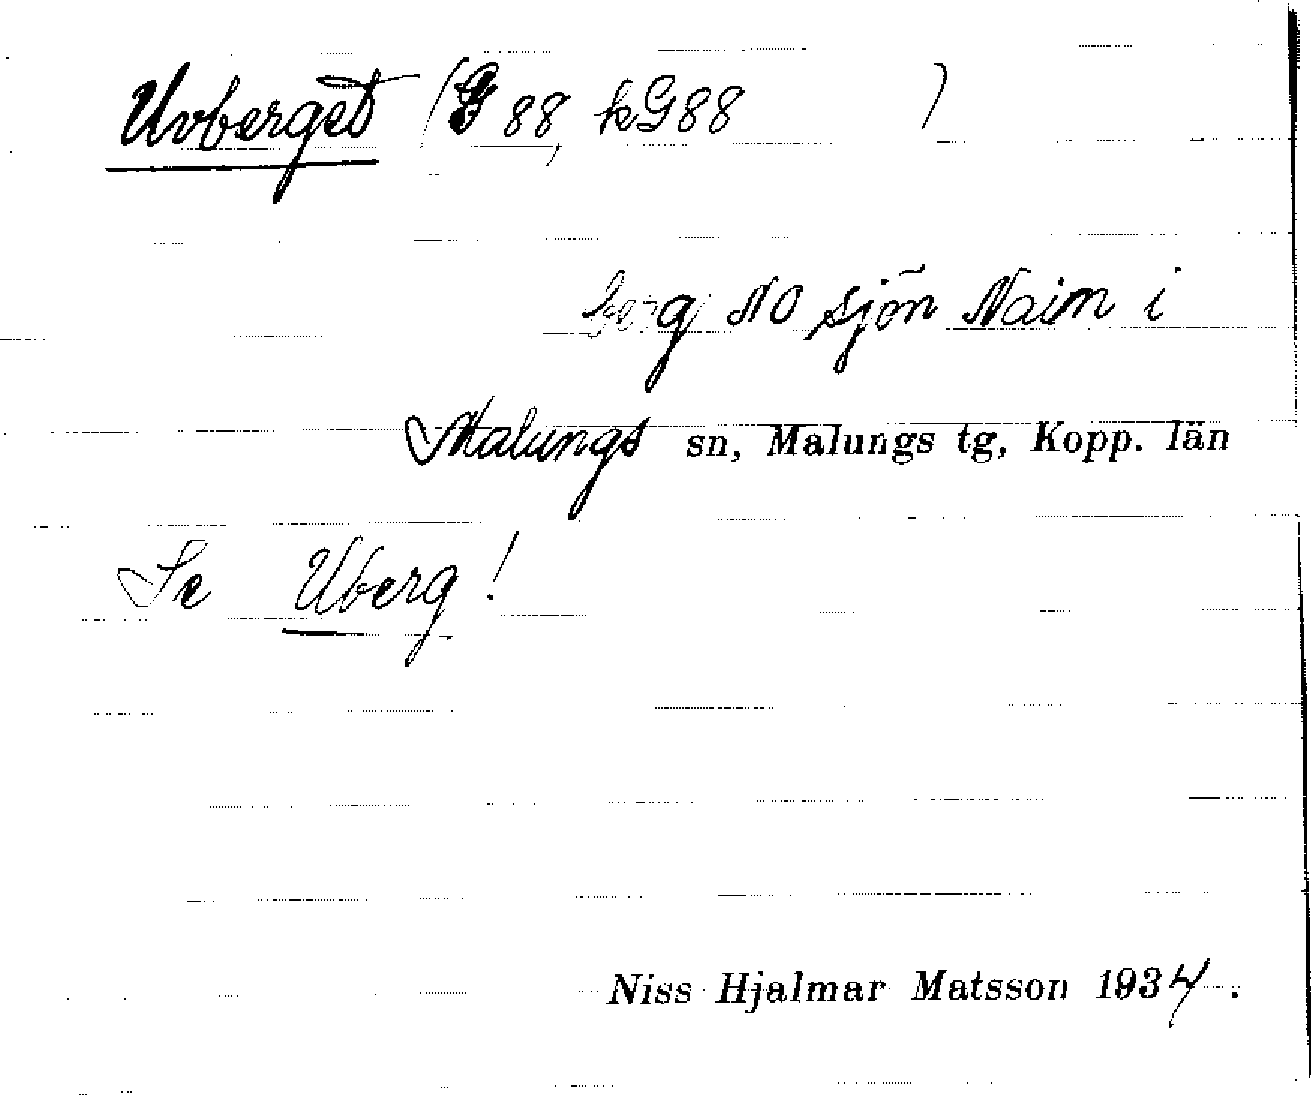 Uvberget (G 88, kG88 )
berg NO sjön Naim i
Malungs sn, Malungs tg, Kopp. län
Se Uberg!
Niss Hjalmar Matsson 1934.